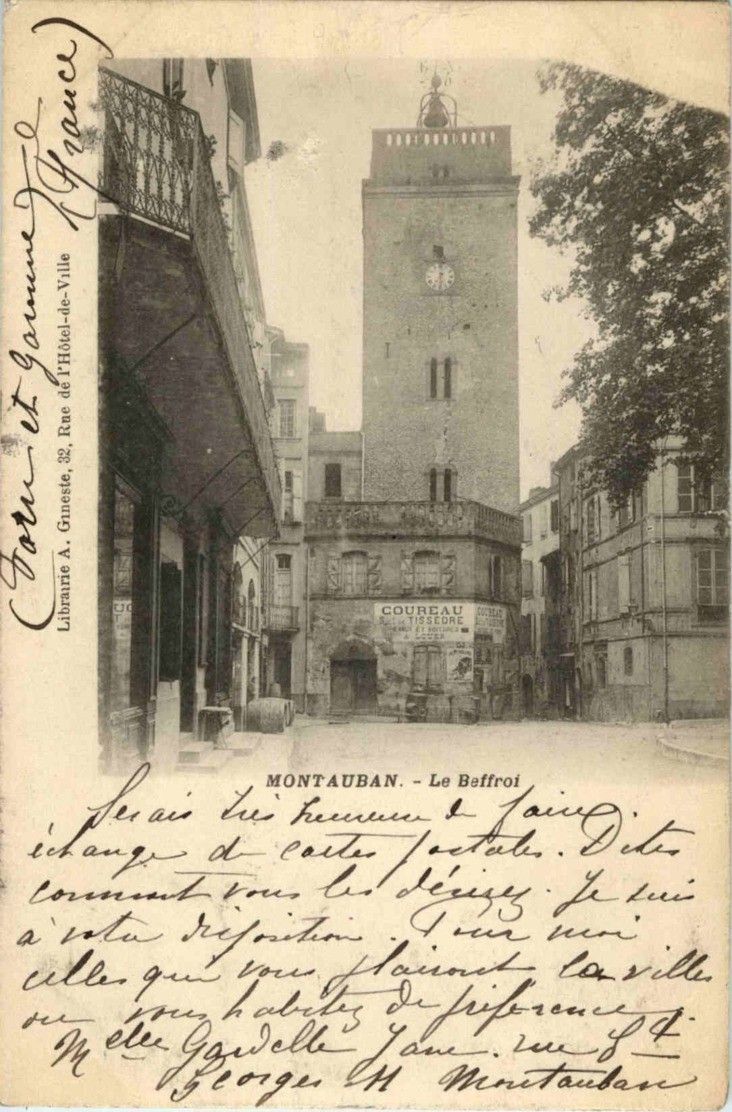 (Tarn et Garonne)
(France)
Librairie A. Gineste, 32, Rue de l'Hôtel-de-Ville
COUREAU
TISSÈDRE
ET VOITURES
A LOUER
COUREAU
MONTAUBAN. - Le Beffroi
Serais très heureuse de faire
échange de cartes postales. Dites
comment vous les désirez. Je suis
à votre disposition. Pour moi
celles que vous plairont, la villes
ou vous habitez de préférence.
Melle Gardelle Jane. rue St
Georges 11 Montauban